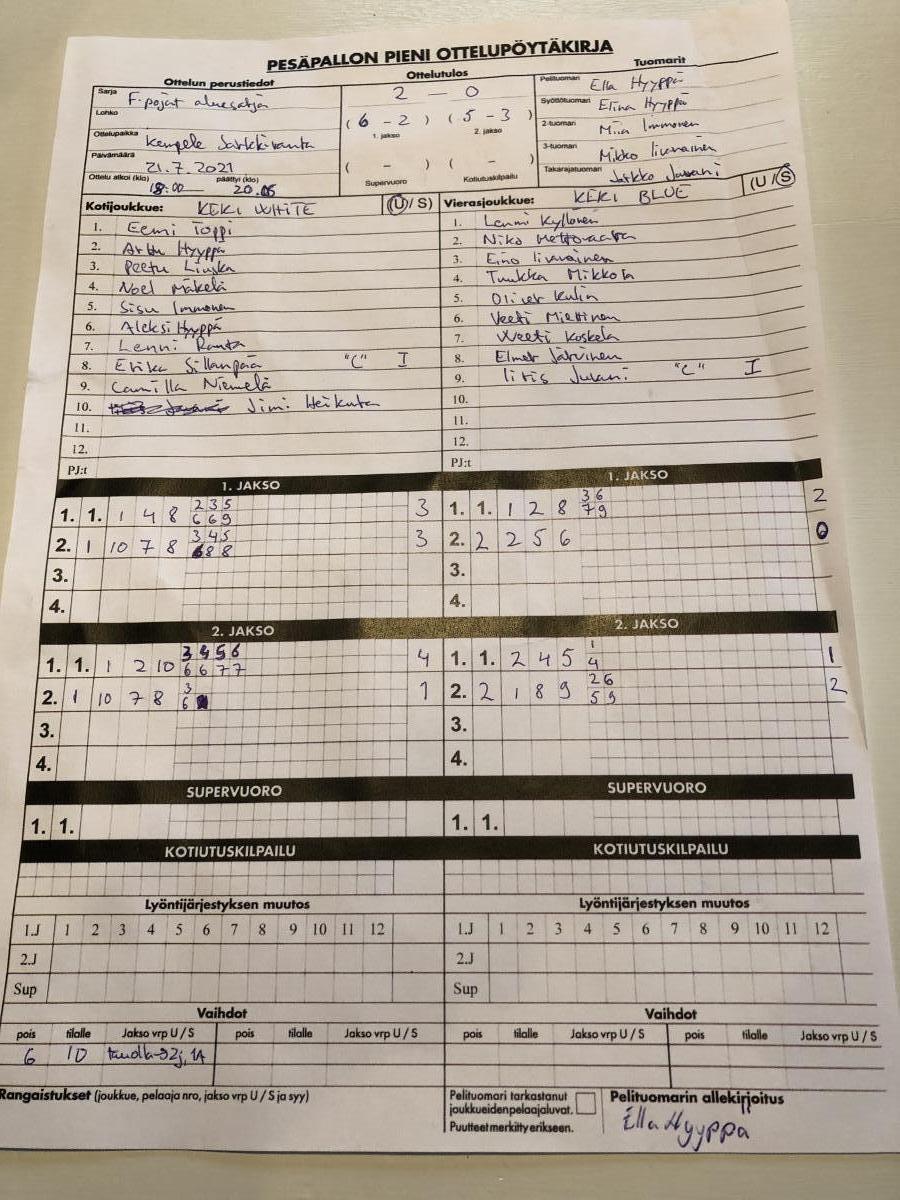 PESÄPALLON PIENI OTTELUPÖYTÄKIRJA
Ottelun perustiedot
Ottelutulos
Tuomarit
Sarja F-pojat aluesarja
Lohko
Ottelupaikka Kempele Sarkkiranta
Päivämäärä 21.7.2021
Ottelu alkoi (klo) päättyi (klo)
18:00 20.05
2 – 0
(6 - 2) (5 - 3)
1. jakso 2. jakso
( - ) ( - )
Supervuoro Kotiutuskilpailu
Pelituomari Ella Hyyppä
Syöttötuomari Elina Hyyppä
2-tuomari Miia Immonen
3-tuomari Mikko Iivanainen
Takarajatuomari Jarkko Juvani
Kotijoukkue: KEKI WHITE (U / S)
1. Eemi Toppi
2. Arttu Hyyppä
3. Peetu Liuska
4. Noel Mäkelä
5. Sisu Immonen
6. Aleksi Hyyppä
7. Lenni Ranta
8. Erika Sillanpää "C" I
9. Camilla Niemelä
10. Jimi Heikura
11.
12.
PJ:t
Vierasjoukkue: KEKI BLUE (U / S)
1. Lenni Kyllönen
2. Niko
3. Eino Iivanainen
4. Tuukka Mikkola
5. Oliver Kulin
6. Veeti Miettinen
7. Weeti Koskela
8. Elmer Järvinen
9. Iiris Juvani "C" I
10.
11.
12.
PJ:t
1. JAKSO
1. 1. 1 4 8 2 3 5 3
6 6 9
2. 1 10 7 8 3 4 5 3
6 8 8
3.
4.
1. JAKSO
1. 1. 1 2 8 3 6 2
7 9
2. 2 2 5 6 0
3.
4.
2. JAKSO
1. 1. 1 2 10 3 4 5 6 4
6 6 7 7
2. 1 10 7 8 3 1
6
3.
4.
2. JAKSO
1. 1. 2 4 5 1 1
4
2. 2 1 8 9 2 6 2
5 9
3.
4.
SUPERVUORO
1. 1.
SUPERVUORO
1. 1.
KOTIUTUSKILPAILU
KOTIUTUSKILPAILU
Lyöntijärjestyksen muutos
1.J 1 2 3 4 5 6 7 8 9 10 11 12
2.J
Sup
Lyöntijärjestyksen muutos
1.J 1 2 3 4 5 6 7 8 9 10 11 12
2.J
Sup
Vaihdot
pois tilalle Jakso vrp U / S pois tilalle Jakso vrp U / S
6 10
Vaihdot
pois tilalle Jakso vrp U / S pois tilalle Jakso vrp U / S
Rangaistukset (joukkue, pelaaja nro, jakso vrp U / S ja syy)
Pelituomari tarkastanut
joukkueidenpelaajaluvat.
Puutteet merkitty erikseen.
Pelituomarin allekirjoitus
Ella Hyyppä